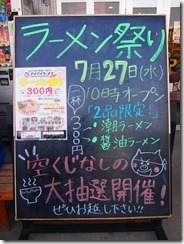 ラーメン祭り
7月27日(水)
10時オープン
一杯300円
「2品限定!」
・潮ラーメン
・醤油ラーメン
空くじなしの
大抽選開催!
ぜひお越し下さい!!
300円